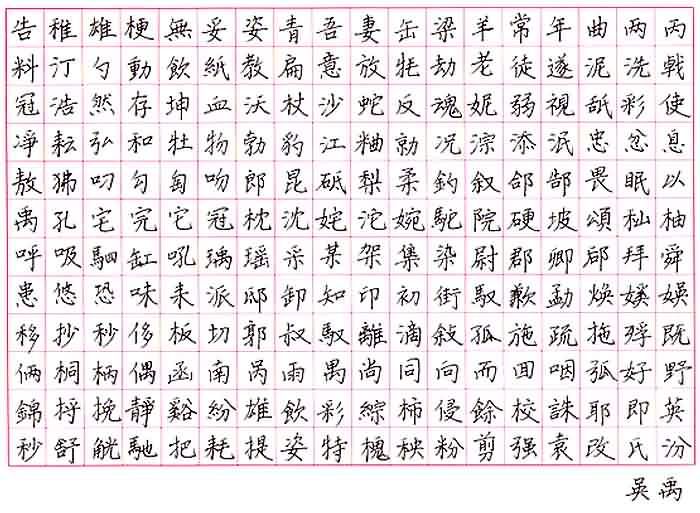 告稚雄梗無妥姿青吾妻缶梁羊常年曲两丙
料汀勺動飲紙教扁意放牦劫老徒遂泥洗戟
冠浩然存坤血沃杖沙蛇反魂妮弱視舐彩使
凈耘弘和牡物勃豹江粬勍况淙添泯忠忿息
敖狒叨勾匋吻郎昆砥梨柔釣叙郃郜畏眠以
禹孔宅完它冠枕沈姹沱婉駝院硬坡頌杣柚
呼吸駟缸吼瑀瑶采某架集染尉郡卿郈拜舜
患悠恐味耒派邸卸知印初街馭歉勐焕媄娛
移抄秒侈板切郭叔馭離滴敍孤施疏拖殍既
俩桐柄偶函南芮雨禺尚同向而囬咽弧好野
錦捋挽靜谿紛雄飲彩綜柿侵餘校誅耶即英
秒舒觥馳把耗提姿特槐秧粉剪强袁改氏汾
吳禹